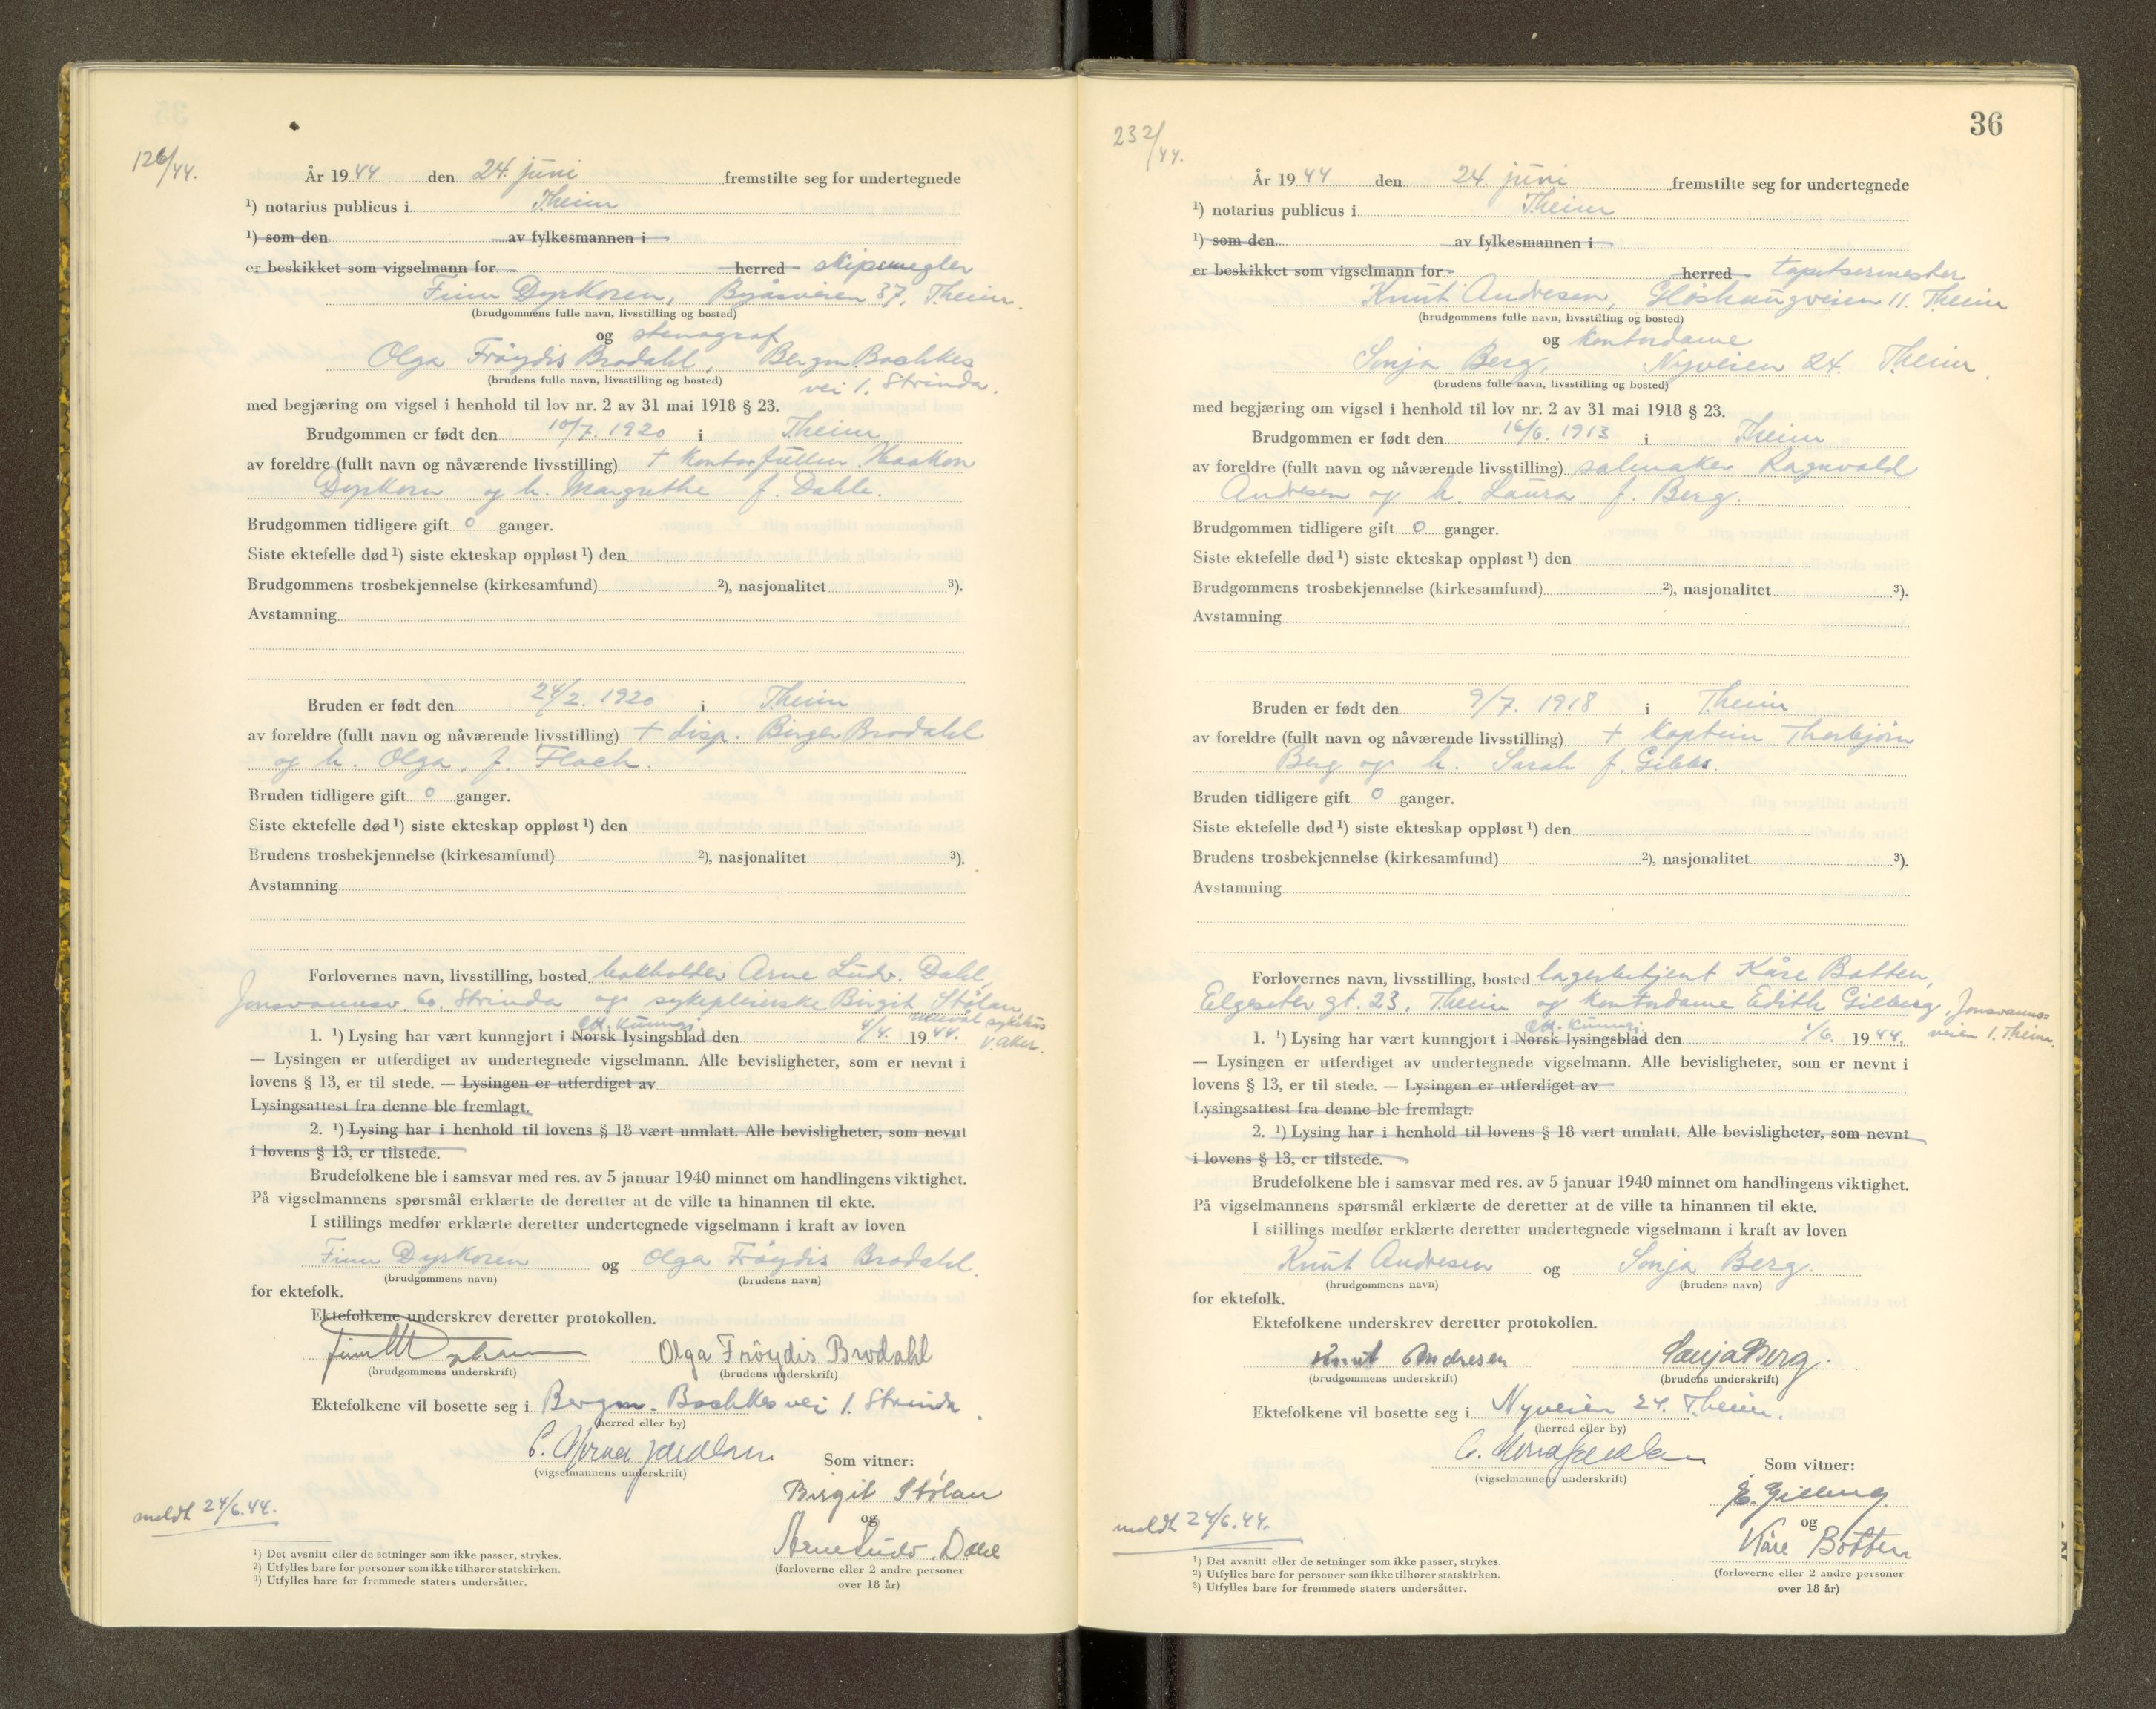 126/44.
År 1944 den 24. juni fremstilte seg for undertegnede
¹) notarius publicus i Theim
¹) som den av fylkesmannen i
er beskikket som vigselmann for herred skipsmegler
Finn Dyrkoren, Byåsveien 37, Theim.
(brudgommens fulle navn, livsstilling og bosted)
og stenograf
Olga Fröydis Brodahl, Bergm. Bachkes
(brudens fulle navn, livsstilling og bosted) vei 1. Strinda.
med begjæring om vigsel i henhold til lov nr. 2 av 31 mai 1918 § 23.
Brudgommen er født den 10/7. 1920 i Theim
av foreldre (fullt navn og nåværende livsstilling) + kontorfullm. Haakon
Dyrkorn og h. Margrethe f. Dahle.
Brudgommen tidligere gift 0 ganger.
Siste ektefelle død ¹) siste ekteskap oppløst ¹) den
Brudgommens trosbekjennelse (kirkesamfund) ²), nasjonalitet ³).
Avstamning
Bruden er født den 24/2. 1920 i Theim
av foreldre (fullt navn og nåværende livsstilling) + disp. Birger Brodahl
og h. Olga, f. Flach.
Bruden tidligere gift 0 ganger.
Siste ektefelle død ¹) siste ekteskap oppløst ¹) den
Brudens trosbekjennelse (kirkesamfund) ²), nasjonalitet ³).
Avstamning
Forlovernes navn, livsstilling, bosted bokholder Arne Ludv. Dahl,
Jonsvannsv. 60. Strinda og sykepleierske Birgit Stölan,
Ullevål sykehus
V. Aker.
1. ¹) Lysing har vært kunngjort i Norsk lysingsblad den 4/4. 1944.
— Lysingen er utferdiget av undertegnede vigselmann. Alle bevisligheter, som er nevnt i
lovens § 13, er til stede. — Lysingen er utferdiget av
Lysingsattest fra denne ble fremlagt.
2. ¹) Lysing har i henhold til lovens § 18 vært unnlatt. Alle bevisligheter, som nevnt
i lovens § 13, er tilstede.
Brudefolkene ble i samsvar med res. av 5 januar 1940 minnet om handlingens viktighet.
På vigselmannens spørsmål erklærte de deretter at de ville ta hinannen til ekte.
I stillings medfør erklærte deretter undertegnede vigselmann i kraft av loven
Finn Dyrkoren og Olga Fröydis Brodahl.
(brudgommens navn) (brudens navn)
for ektefolk.
Ektefolkene underskrev deretter protokollen.
Olga Fröydis Brodahl
(brudgommens underskrift) (brudens underskrift)
Ektefolkene vil bosette seg i Bergm. Bachkes vei 1. Strinda.
(herred eller by)
(vigselmannens underskrift) Som vitner:
Birgit Stölan
og
Arne Ludv. Dahl
(forloverne eller 2 andre personer
over 18 år)
meldt 24/6.44.
¹) Det avsnitt eller de setninger som ikke passer, strykes.
²) Utfylles bare for personer som ikke tilhører statskirken.
³) Utfylles bare for fremmede staters undersåtter.
36
232/44.
År 1944 den 24. juni fremstilte seg for undertegnede
¹) notarius publicus i Theim
¹) som den av fylkesmannen i
er beskikket som vigselmann for herred tapetsermester
Knut Andresen, Glöshaugveien 11. Theim
(brudgommens fulle navn, livsstilling og bosted)
og kontordame
Sonja Berg, Nyveien 24. Theim.
(brudens fulle navn, livsstilling og bosted)
med begjæring om vigsel i henhold til lov nr. 2 av 31 mai 1918 § 23.
Brudgommen er født den 16/6. 1913 i Theim
av foreldre (fullt navn og nåværende livsstilling) salmaker Ragnvald
Andresen og h. Laura f. Berg.
Brudgommen tidligere gift 0 ganger.
Siste ektefelle død ¹) siste ekteskap oppløst ¹) den
Brudgommens trosbekjennelse (kirkesamfund) ²), nasjonalitet ³).
Avstamning
Bruden er født den 9/7. 1918 i Theim
av foreldre (fullt navn og nåværende livsstilling) + kaptein Thorbjörn
Berg og h. Sarah f. Gibbs.
Bruden tidligere gift 0 ganger.
Siste ektefelle død ¹) siste ekteskap oppløst ¹) den
Brudens trosbekjennelse (kirkesamfund) ²), nasjonalitet ³).
Avstamning
Forlovernes navn, livsstilling, bosted lagerbetjent Kåre Botten,
Elgeseter gt. 23. Theim og kontordame Edith Gilberg, Jonsvanns-
veien 1. Theim.
1. ¹) Lysing har vært kunngjort i Norsk lysingsblad den 1/6. 1944.
— Lysingen er utferdiget av undertegnede vigselmann. Alle bevisligheter, som er nevnt i
lovens § 13, er til stede. — Lysingen er utferdiget av
Lysingsattest fra denne ble fremlagt.
2. ¹) Lysing har i henhold til lovens § 18 vært unnlatt. Alle bevisligheter, som nevnt
i lovens § 13, er tilstede.
Brudefolkene ble i samsvar med res. av 5 januar 1940 minnet om handlingens viktighet.
På vigselmannens spørsmål erklærte de deretter at de ville ta hinannen til ekte.
I stillings medfør erklærte deretter undertegnede vigselmann i kraft av loven
Knut Andresen og Sonja Berg.
(brudgommens navn) (brudens navn)
for ektefolk.
Ektefolkene underskrev deretter protokollen.
Knut Andresen Sonja Berg.
(brudgommens underskrift) (brudens underskrift)
Ektefolkene vil bosette seg i Nyveien 24. Theim.
(herred eller by)
(vigselmannens underskrift) Som vitner:
E. Gilberg
og
Kåre Botten
(forloverne eller 2 andre personer
over 18 år)
meldt 24/6.44.
¹) Det avsnitt eller de setninger som ikke passer, strykes.
²) Utfylles bare for personer som ikke tilhører statskirken.
³) Utfylles bare for fremmede staters undersåtter.